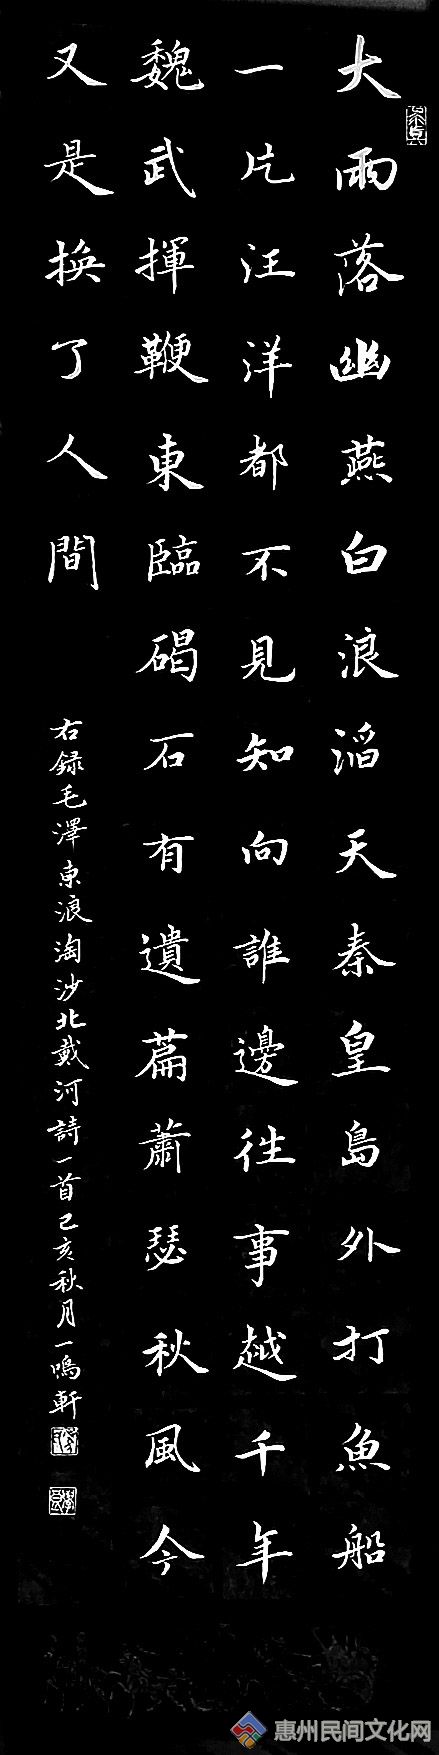 大雨落幽燕白浪滔天秦皇島外打魚船
一片汪洋都不見知向誰邊往事越千年
魏武揮鞭東臨碣石有遺篇蕭瑟秋風今
又是換了人間
右録毛澤東浪淘沙北戴河詩一首己亥秋月一鳴軒
惠州民间文化网